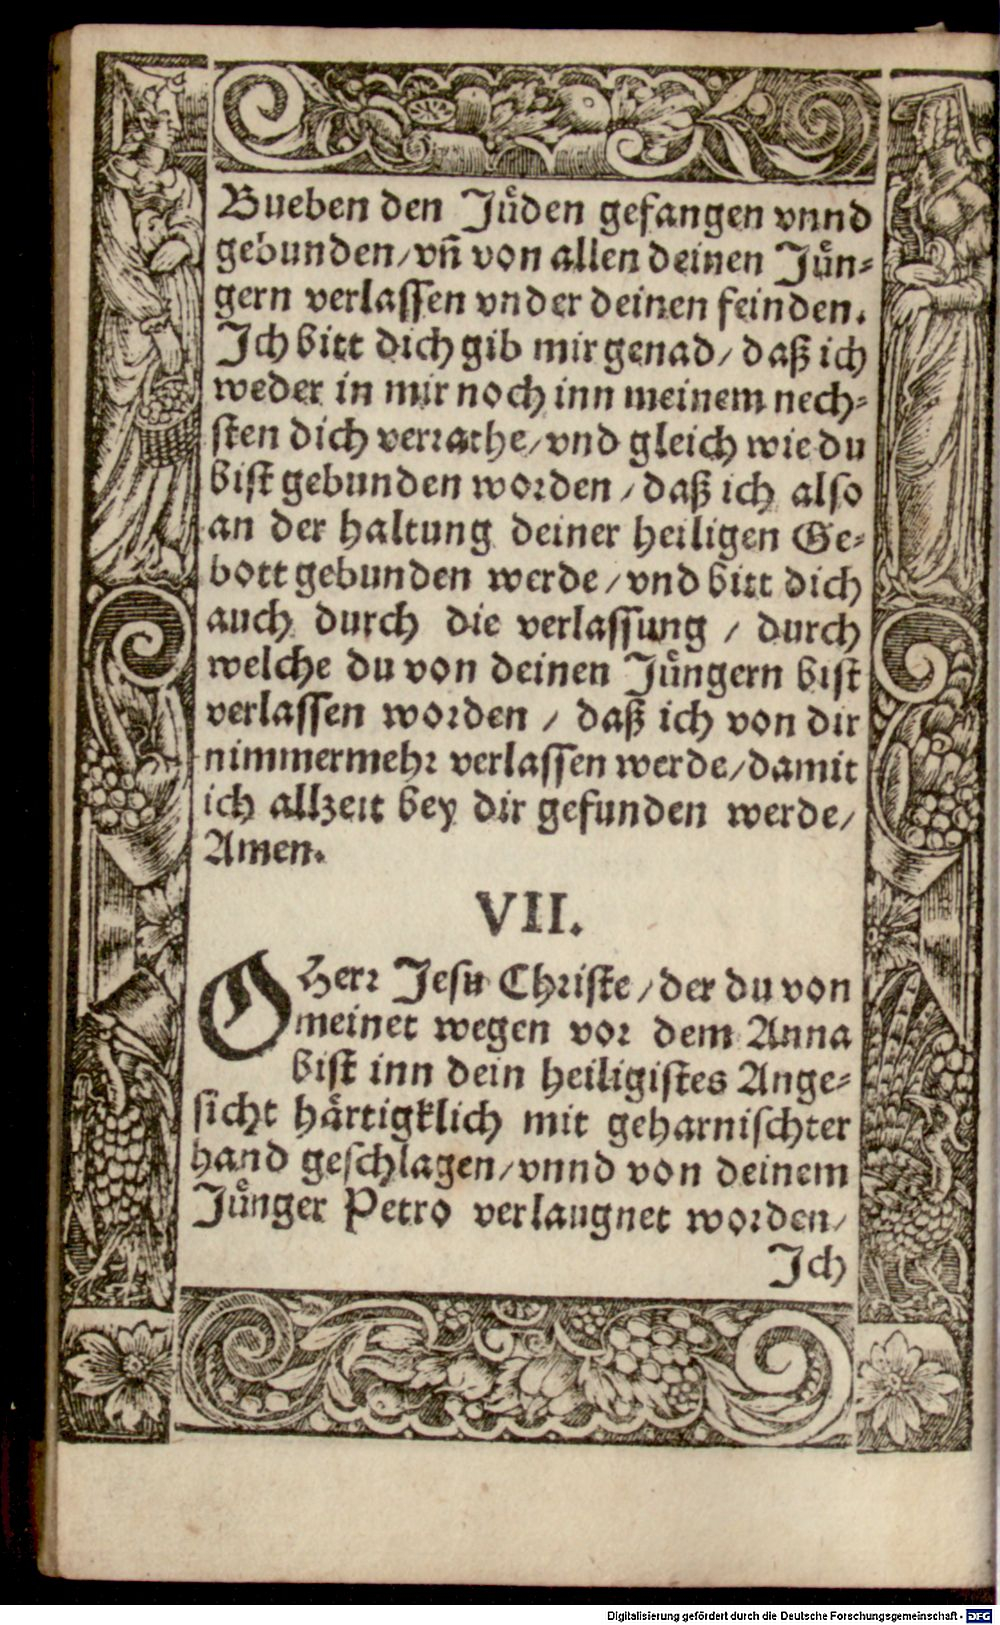 Bueben den Jůden gefangen vnnd
gebunden/vn̄ von allen deinen Jůn⸗
gern verlassen vnder deinen feinden.
Ich bitt dich gib mir genad/ daß ich
weder in mir noch inn meinem nech⸗
sten dich verrathe/vnd gleich wie du
bist gebunden worden / daß ich also
an der haltung deiner heiligen Ge⸗
bott gebunden werde/vnd bitt dich
auch durch die verlassung / durch
welche du von deinen Jůngern bist
verlassen worden / daß ich von dir
nimmermehr verlassen werde/damit
ich allzeit bey dir gefunden werde/
Amen.
VII.
O Herr Jesu Christe/der du von
meinet wegen vor dem Anna
bist inn dein heiligistes Ange⸗
sicht härtigklich mit geharnischter
hand geschlagen/vnnd von deinem
Jůnger Petro verlaugnet worden/
Ich
Digitalisierung gefördert durch die Deutsche Forschungsgemeinschaft - DFG